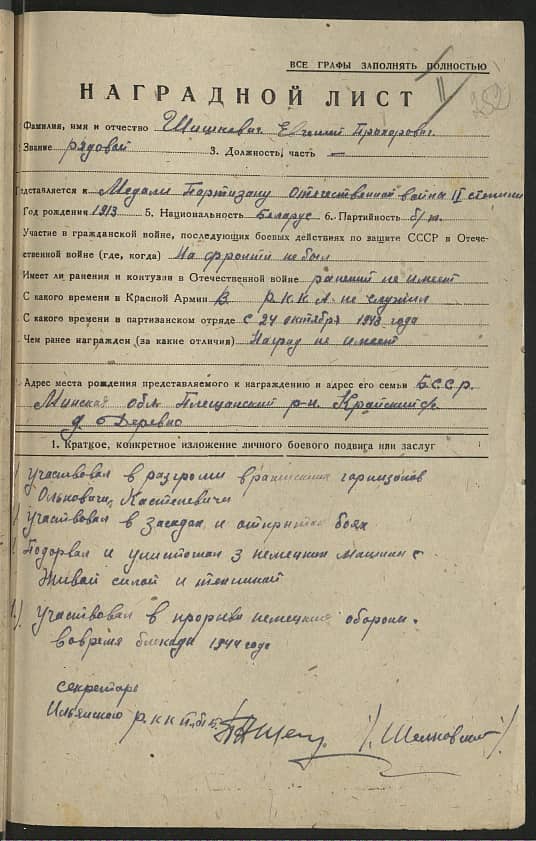 ВСЕ ГРАФЫ ЗАПОЛНЯТЬ ПОЛНОСТЬЮ
НАГРАДНОЙ ЛИСТ
Фамилия, имя и отчество Шишкевич Евгений Прохорович
Звание рядовой 3. Должность, часть —
едставляется к Медали Партизану Отечественной войны II степени
Год рождения 1913 5. Национальность Беларус 6. Партийность б/п.
Участие в гражданской войне, последующих боевых действиях по защите СССР в Отече-
ственной войне (где, когда) На фронти не был
Имеет ли ранения и контузии в Отечественной войне ранений не имеет
С какого времени в Красной Армии В Р.К.К.А. не служил
С какого времени в партизанском отряде С 24 октября 1943 года
Чем ранее награжден (за какие отличия) Наград не имеет
Адрес места рождения представляемого к награждению и адрес его семьи Б.С.С.Р.
Минская обл. Плещанский р-н. Крайский
д. Деревно
1. Краткое, конкретное изложение личного боевого подвига или заслуг
участвовал в разгроми вражиских гарнизонов
Ольковичи, Костеневичи
участвовал в засадах и открытых боях
Подорвал и уничтожил 3 немецких машины с
Живой силой и техникой
участвовал в прорыве немецкой обороны.
вовремя блокады 1944 года
секретарь
Ильянского р.к К.П.б.Б.